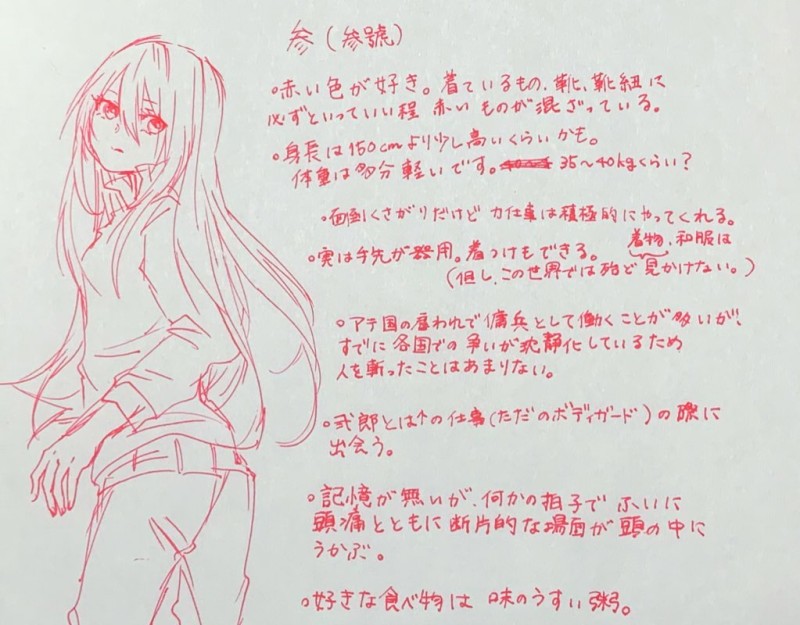 参(参號)
。赤い色が好き。着ているもの、靴、靴紐に
必ずといっていい程 赤いものが混ざっている。
。身長は150cmより少し高いくらいかも。
体重は多分軽いです。 35〜40kgくらい?
。面倒くさがりだけど 力仕事は積極的にやってくれる。
。実は手先が器用。着つけもできる。 着物、和服は
(但し、この世界では殆ど見かけない。)
。アテ国の雇われで傭兵として働くことが多いが、
すでに各国での争いが沈静化しているため
人を斬ったことはあまりない。
。弐郎とは↑の仕事(ただのボディガード)の際に
出会う。
。記憶が無いが、何かの拍子で ふいに
頭痛とともに断片的な場面が頭の中に
うかぶ。
。好きな食べ物は 味のうすい粥。